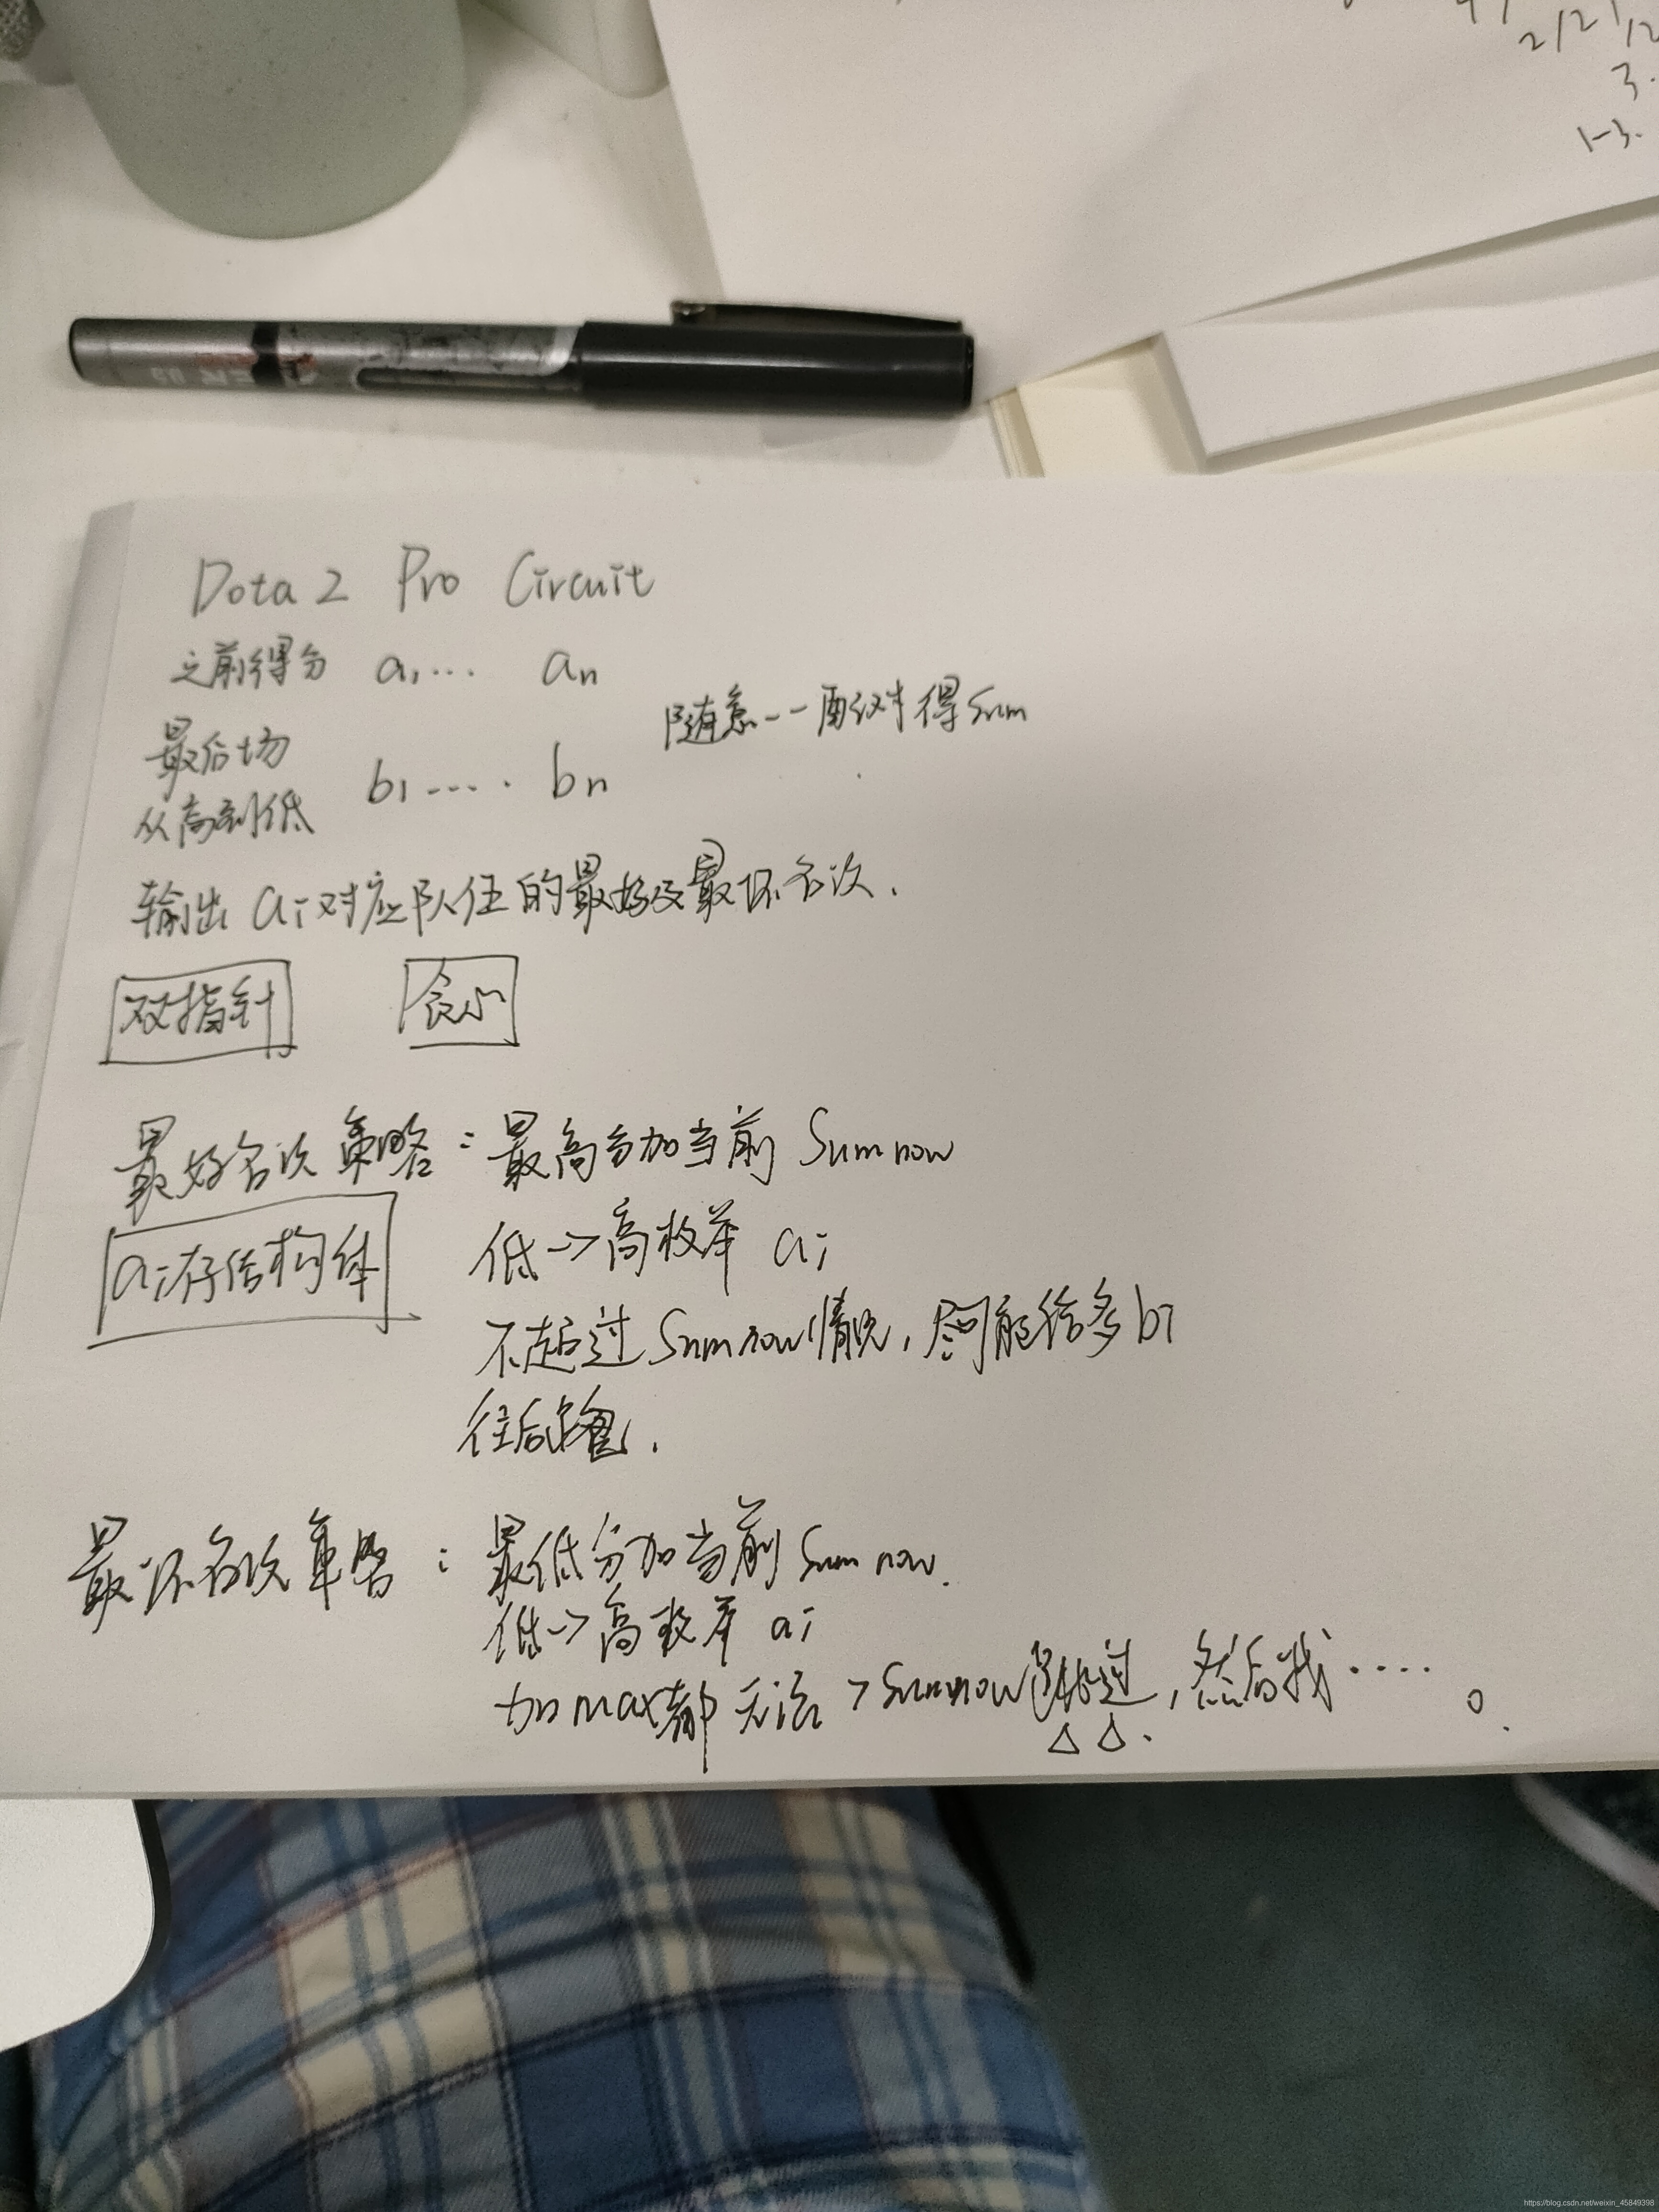 2/2 1/2
3.
1-3.
Dota 2 Pro Circuit
之前得分 a1... an
随意一一配对得sum
最后场
从高到低 b1..... bn
输出 ai对应队伍的最好及最坏名次.
双指针 贪心
最好名次策略：最高分加当前 Sumnow
ai存结构体
低->高枚举 ai
不超过 Sumnow情况,尽可能给多bi
往后
最坏名次策略：最低分加当前 Sumnow.
低->高枚举 ai
加max都无法>Sumnow 跳过,然后找....。
https://blog.csdn.net/weixin_45849398